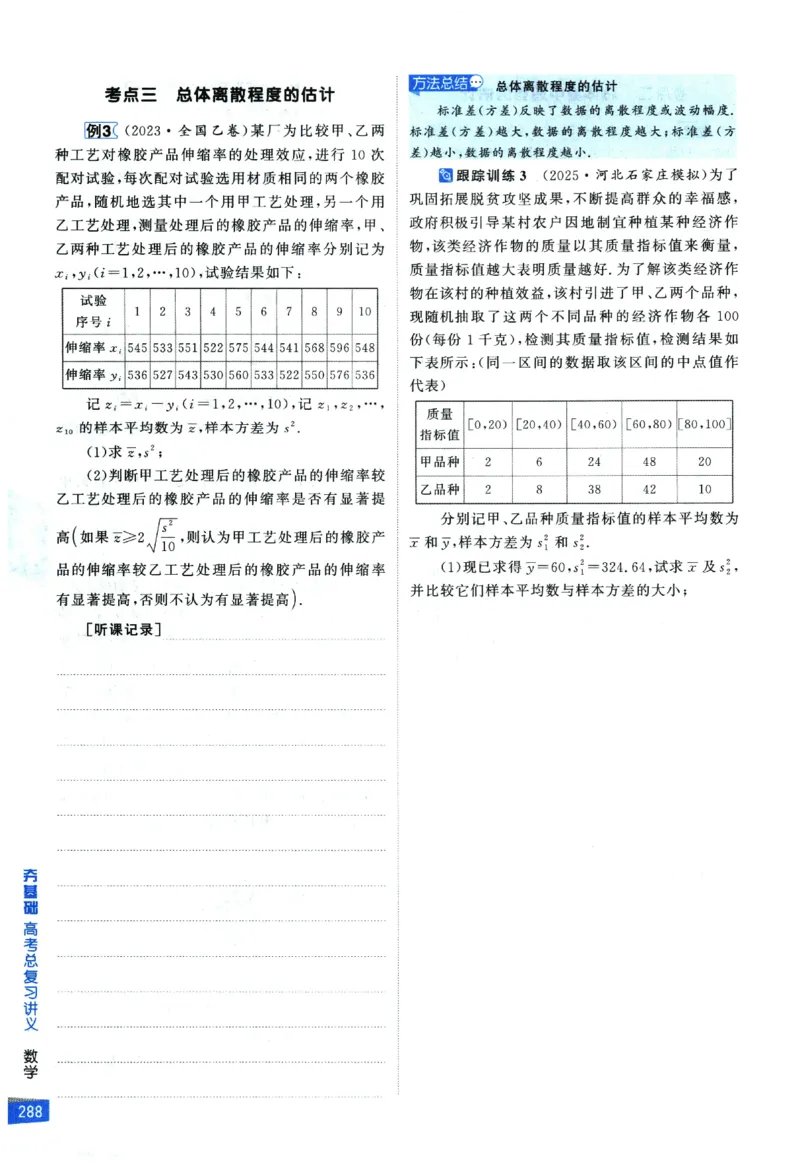 考点三 总体离散程度的估计
例3 (2023·全国乙卷)某厂为比较甲、乙两
种工艺对橡胶产品伸缩率的处理效应,进行 10 次
配对试验,每次配对试验选用材质相同的两个橡胶
产品,随机地选其中一个用甲工艺处理,另一个用
乙工艺处理,测量处理后的橡胶产品的伸缩率,甲、
乙两种工艺处理后的橡胶产品的伸缩率分别记为
xᵢ,yᵢ(i=1,2,…,10),试验结果如下:
试验
序号 i 1 2 3 4 5 6 7 8 9 10
伸缩率 xᵢ 545 533 551 522 575 544 541 568 596 548
伸缩率 yᵢ 536 527 543 530 560 533 522 550 576 536
记 zᵢ=xᵢ-yᵢ(i=1,2,…,10),记 z₁,z₂,…,
z₁₀ 的样本平均数为 z̄,样本方差为 s².
(1)求 z̄,s²;
(2)判断甲工艺处理后的橡胶产品的伸缩率较
乙工艺处理后的橡胶产品的伸缩率是否有显著提
高(如果 z̄≥2√(s²/10),则认为甲工艺处理后的橡胶产
品的伸缩率较乙工艺处理后的橡胶产品的伸缩率
有显著提高,否则不认为有显著提高).
[听课记录]
方法总结 总体离散程度的估计
标准差(方差)反映了数据的离散程度或波动幅度.
标准差(方差)越大,数据的离散程度越大;标准差(方
差)越小,数据的离散程度越小.
跟踪训练 3 (2025·河北石家庄模拟)为了
巩固拓展脱贫攻坚成果,不断提高群众的幸福感,
政府积极引导某村农户因地制宜种植某种经济作
物,该类经济作物的质量以其质量指标值来衡量,
质量指标值越大表明质量越好.为了解该类经济作
物在该村的种植效益,该村引进了甲、乙两个品种,
现随机抽取了这两个不同品种的经济作物各 100
份(每份 1 千克),检测其质量指标值,检测结果如
下表所示:(同一区间的数据取该区间的中点值作
代表)
质量
指标值 [0,20) [20,40) [40,60) [60,80) [80,100]
甲品种 2 6 24 48 20
乙品种 2 8 38 42 10
分别记甲、乙品种质量指标值的样本平均数为
x̄ 和 ȳ,样本方差为 s₁² 和 s₂².
(1)现已求得 ȳ=60,s₁²=324.64,试求 x̄ 及 s₂²,
并比较它们样本平均数与样本方差的大小;
夯基础 高考总复习讲义 数学
288